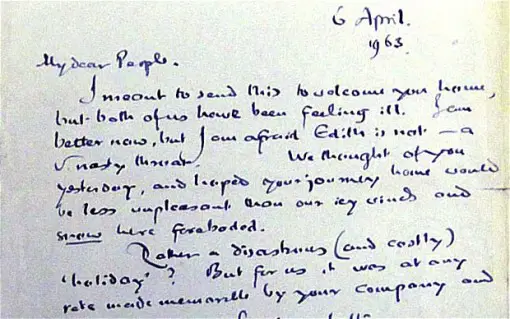 6 April.
1963.
My dear People.
I meant to send this to welcome you home,
but both of us have been feeling ill. I am
better now, but I am afraid Edith is not — a
v nasty throat. We thought of you
yesterday, and hoped your journey home would
be less unpleasant than our icy winds and
snow here foreboded.
Rather a disastrous (and costly)
'holiday'? But for us it was at any
rate made memorable by your company and